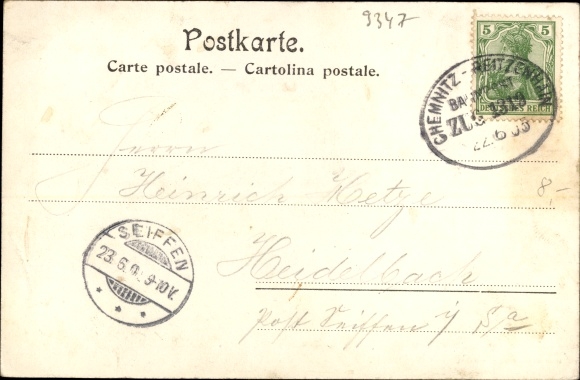 9347
Postkarte.
Carte postale. — Cartolina postale.
5 5
DEUTSCHES REICH
CHEMNITZ - REITZENHAIN
BAHNPOST
ZUG
22.6 05
Herrn
Heinrich Hetze
8,-
SEIFFEN
23.6.0. 9-10V.
* * *
Heidelbach
Post Seiffen i/ Sa